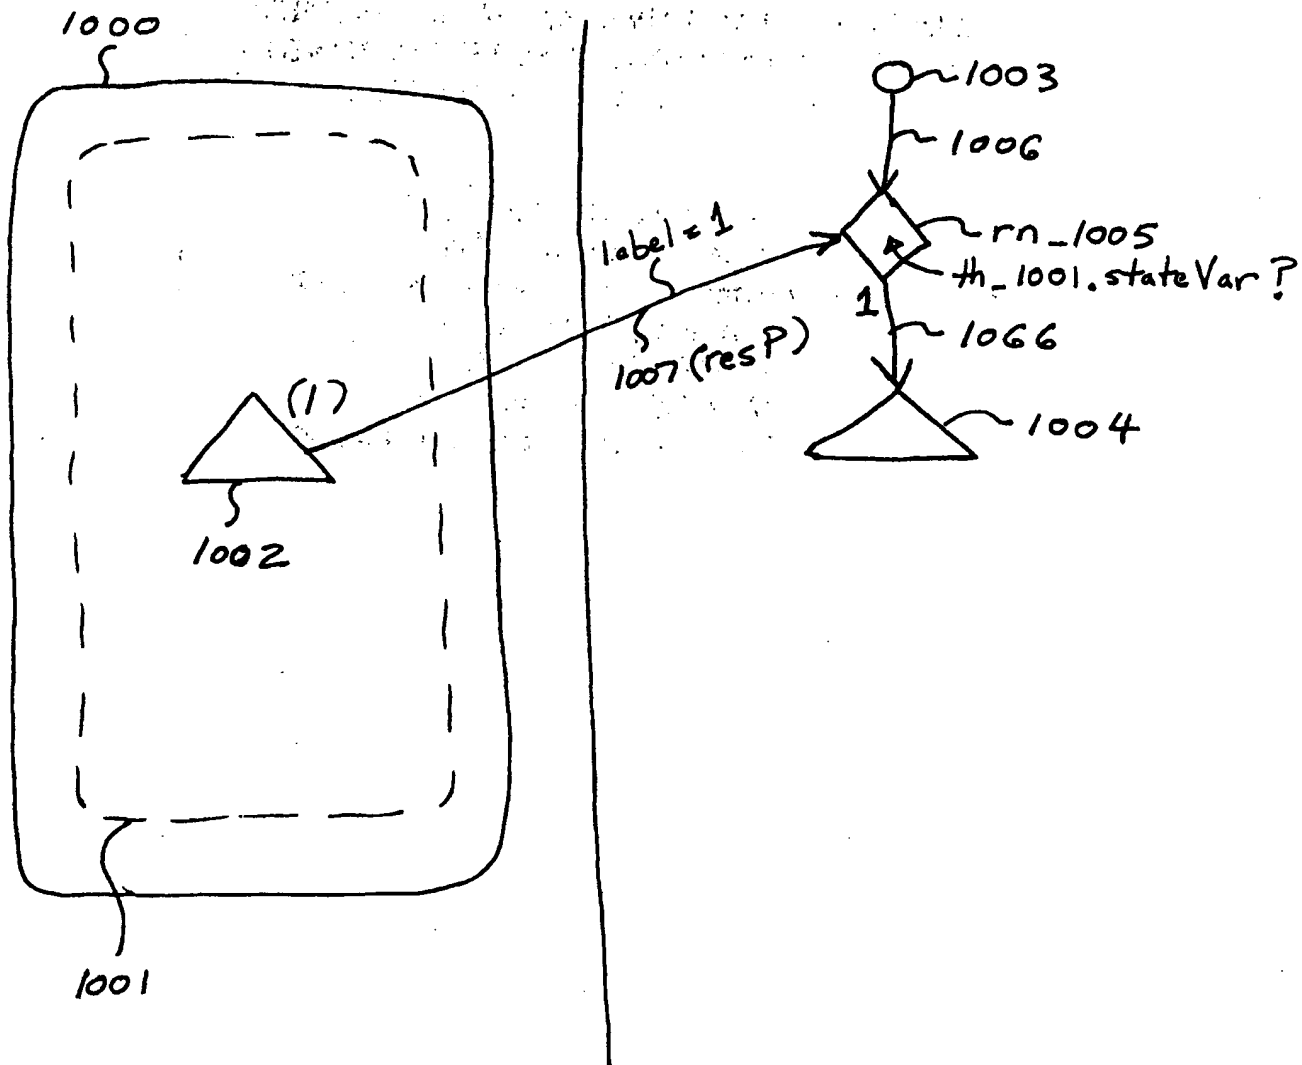 1000
1003
1006
label = 1
rn_1005
th_1001.stateVar?
1
1066
1007 (resP)
(1)
1004
1002
1001